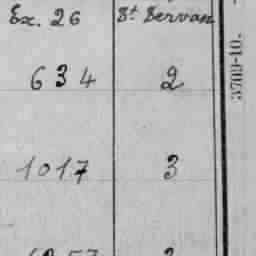 Ex. 26 St Servan
634 2
1017 3
3709-10.